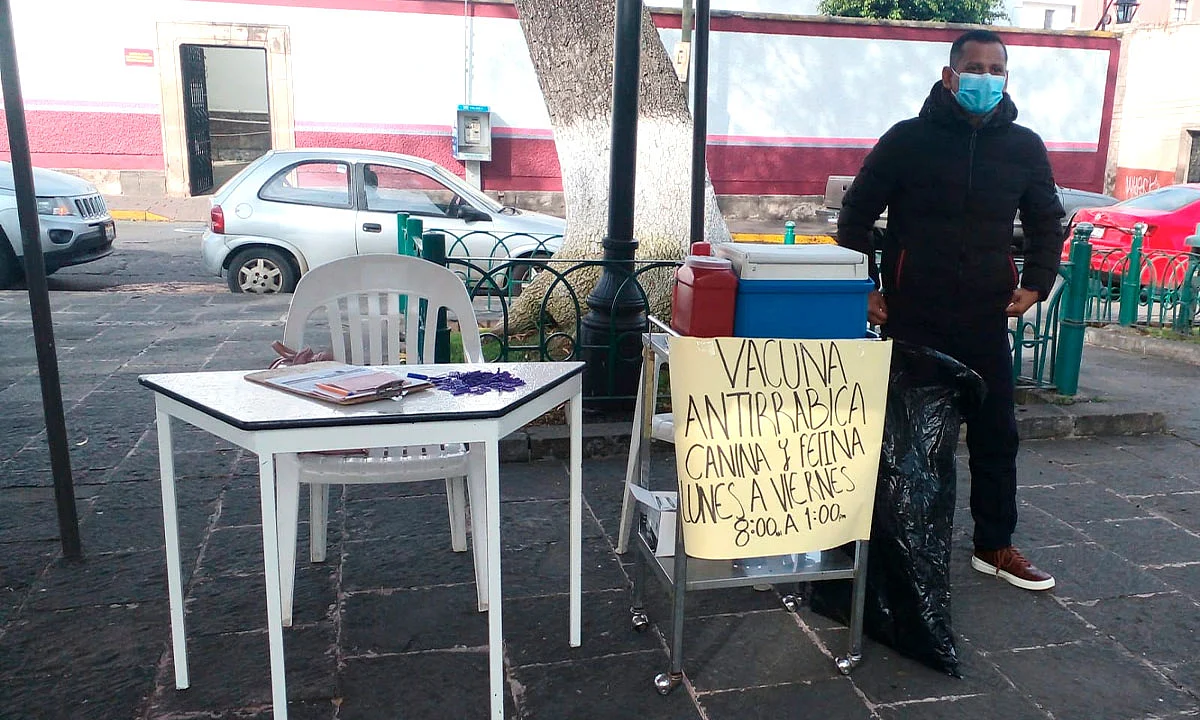 VACUNA
ANTIRRABICA
CANINA y FELINA
LUNES A VIERNES
8:00 A 1:00pm